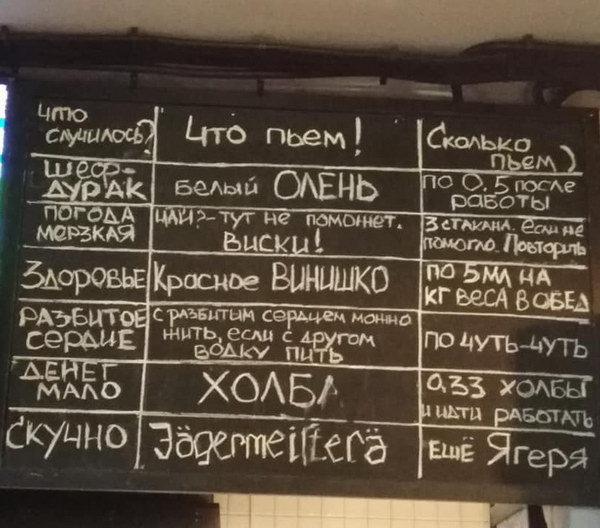 что
случилось?
Что пьем!
Сколько
пьем)
шеф-
дурак
белый ОЛЕНЬ
по 0,5 после
работы
погода
мерзкая
чай?-тут не поможет.
виски!
3 стакана. если не
помогло. Повторить
Здоровье
Красное ВИНИШКО
по 5мл на
кг веса в обед
разбитое
сердце
с разбитым сердцем можно
жить, если с другом
водку пить
по чуть-чуть
денег
мало
ХОЛБА
0,33 холбы
и идти работать
скучно
Jägermeisterä
ещё Ягеря